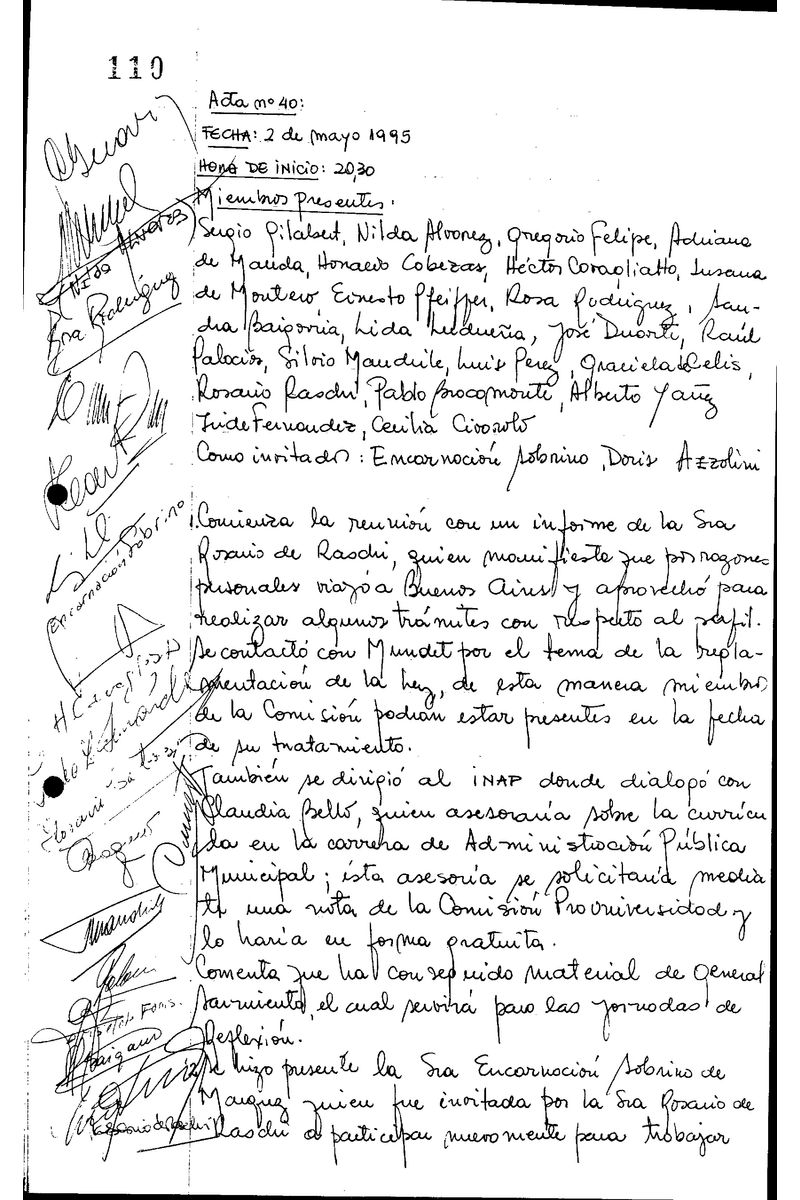 110
Acta nº 40:
FECHA: 2 de mayo 1995
HORA DE INICIO: 20,30
Miembros presentes.
Sergio Gilabert, Nilda Alvarez, Gregorio Felipe, Adriana
de Mauda, Horacio Cabezas, Héctor Caragliatto, Susana
de Montero Ernesto Pfeiffer, Rosa Rodriguez, San-
dra Baigorria, Lida Ludueña, José Duarte, Raúl
Palacios, Silvio Mandrile, Luis Perez, Graciela Gelis,
Rosario Raschi, Pablo Bracamonte, Alberto Yañez
Iride Fernandez, Cecilia Civarolo
Como invitados: Encarnación Sobrino, Doris Azzolini
Comienza la reunión con un informe de la Sra
Rosario de Raschi, quien manifiesta que por razones
personales viajó a Buenos Aires y aprovechó para
realizar algunos trámites con respecto al perfil.
Se contactó con Mundet por el tema de la regla-
mentación de la ley, de esta manera miembros
de la Comisión podrán estar presentes en la fecha
de su tratamiento.
También se dirigió al INAP donde dialogó con
Claudia Bello, quien asesoraría sobre la currícu
la en la carrera de Administración Pública
Municipal; ésta asesoría se solicitaría media
te una nota de la Comisión Prouniversidad y
lo haría en forma gratuita.
Comenta que ha conseguido material de General
Sarmiento, el cual servirá para las Jornadas de
Reflexión.
Se hizo presente la Sra Encarnación Sobrino de
Marquez quien fue invitada por la Sra Rosario de
Raschi a participar nuevamente para trabajar
Nilda Alvarez
Rosa Rodríguez
Encarnación Sobrino
Mandrile
Rosario de Raschi